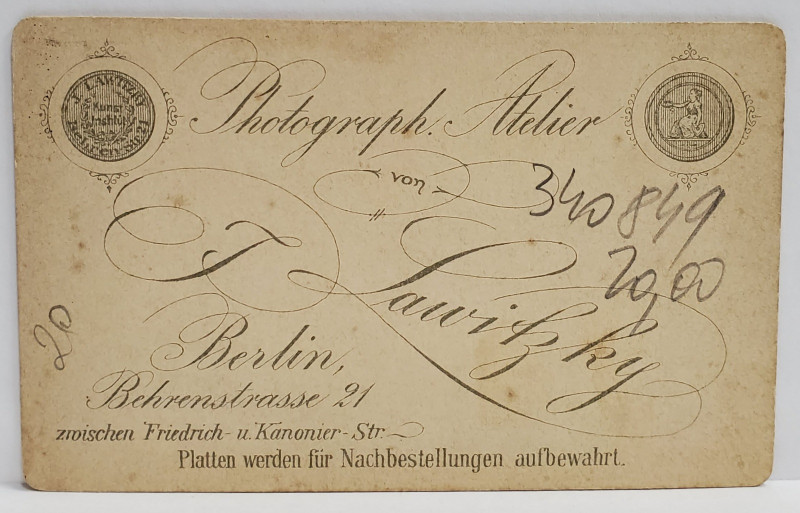 J. LAWITZKY
Kunst
Institut
Photograph. Atelier
von
J. Lawitzky
340849
20,00
20
Berlin,
Behrenstrasse 21
zwischen Friedrich- u. Kanonier-Str.
Platten werden für Nachbestellungen aufbewahrt.